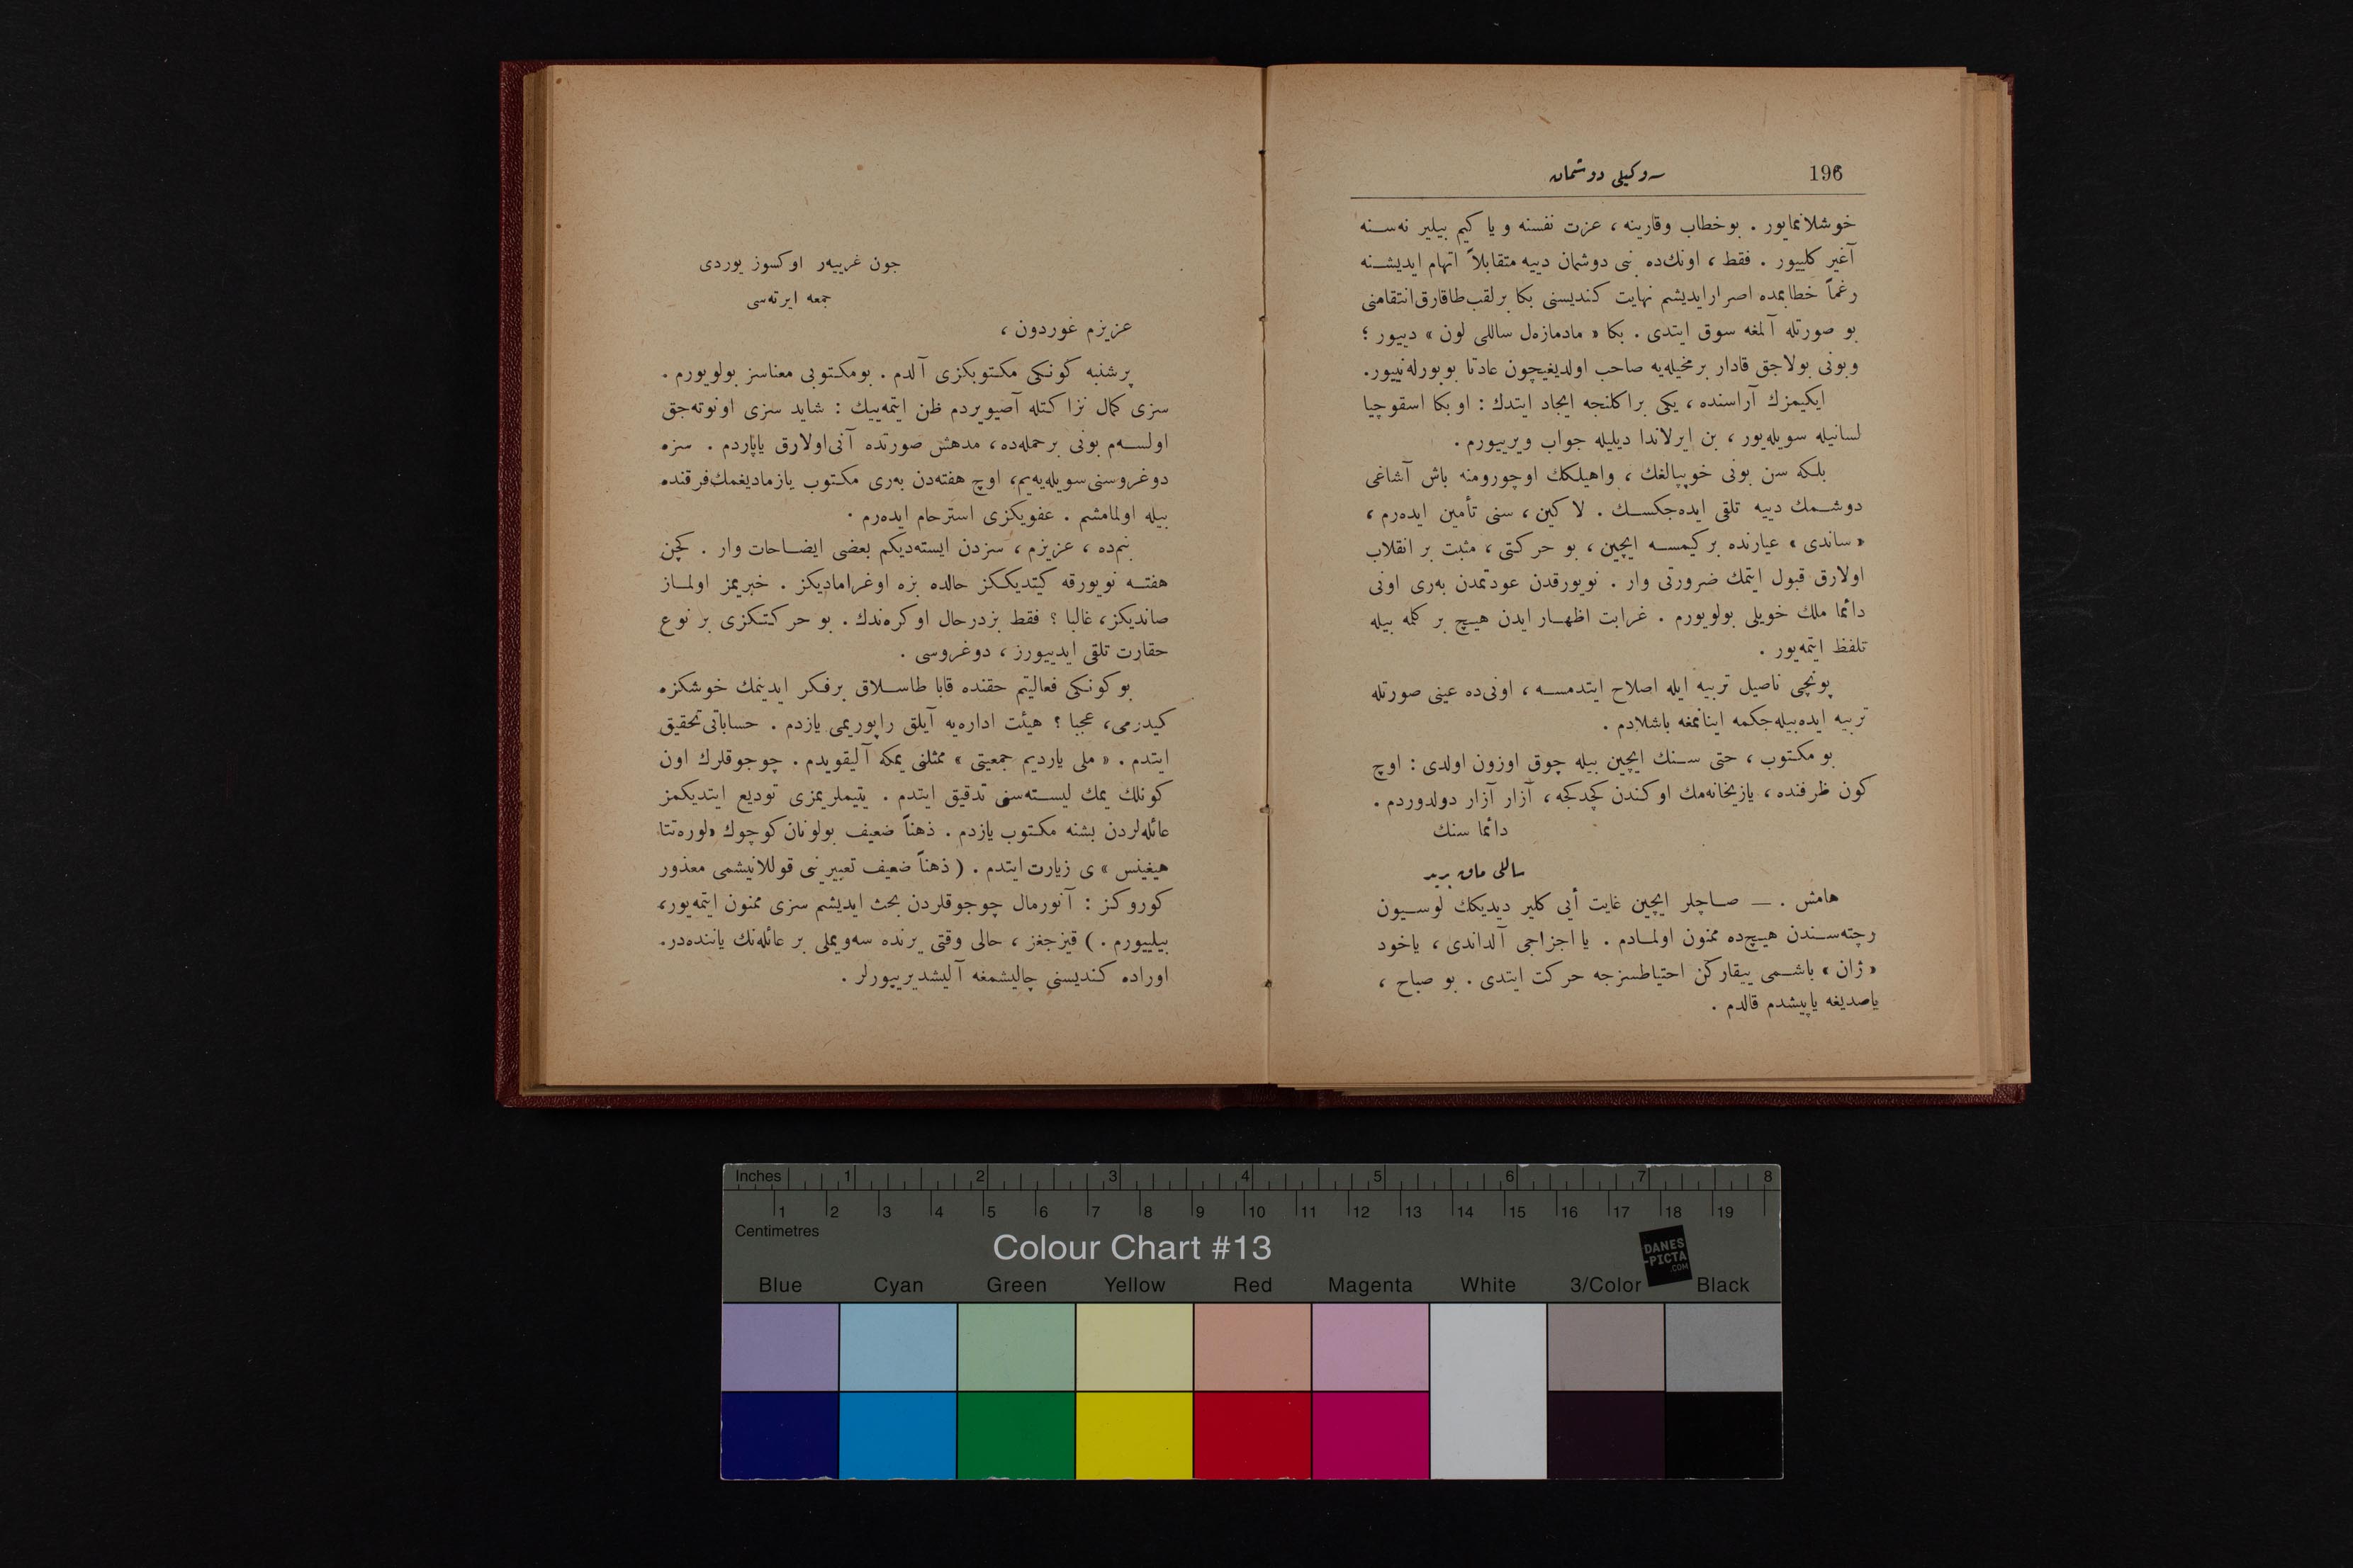 196
سه‌وكيلی دوشمان
خوشلانمايور . بوخطاب وقارينه ، عزت نفسنه و يا كيم بيلير نه‌سنه
آغير كلييور . فقط ، اونك‌ده بنی دوشمان دييه متقابلاً اتهام ايديشنه
رغماً خطابمده اصرارايديشم نهايت كنديسنی بكا برلقب‌طاقارق‌انتقامنی
بو صورتله آلمغه سوق ايتدی . بكا « مادمازه‌ل ساللی لون » دييور ؛
وبونی بولاجق قادار برمخيله‌يه صاحب اولديغيچون عادتا بوبورله‌نييور.
ايكيمزك آراسنده ، يكی براكلنجه ايجاد ايتدك : او بكا اسقوچيا
لسانيله سويله‌يور ، بن ايرلاندا ديليله جواب ويرييورم .
بلكه سن بونی خوپپالغك ، واهيلكك اوچورومنه باش آشاغی
دوشمك دييه تلقی ايده‌جكسك . لاكين ، سنی تأمين ايده‌رم ،
« ساندی » عيارنده بركيمسه ايچين ، بو حركتی ، مثبت بر انقلاب
اولارق قبول ايتمك ضرورتی وار . نويورقدن عودتمدن به‌ری اونی
دائما ملك خويلی بولويورم . غرابت اظهار ايدن هيچ بر كلمه بيله
تلفظ ايتمه‌يور .
پونچی ناصيل تربيه ايله اصلاح ايتدمسه ، اونی‌ده عينی صورتله
تربيه ايده‌بيله‌جكمه اينانمغه باشلادم .
بو مكتوب ، حتی سنك ايچين بيله چوق اوزون اولدی : اوچ
كون ظرفنده ، يازيخانه‌مك اوكندن كچدكجه ، آزار آزار دولدوردم .
دائما سنك
ساللی ماق برید
هامش . — صاچلر ايچين غايت أيی كلير ديديكك لوسيون
رچته‌سندن هيچ‌ده ممنون اولمادم . يا اجزاجی آلداندی ، ياخود
« ژان » باشمی ييقاركن احتياطسزجه حركت ايتدی . بو صباح ،
ياصديغه ياپيشدم قالدم .
جون غرييه‌ر اوكسوز يوردی
جمعه ايرته‌سی
عزيزم غوردون ،
پرشنبه كونكی مكتوبكزی آلدم . بومكتوبی معناسز بولويورم .
سزی كمال نزاكتله آصيويردم ظن ايتمه‌ييك : شايد سزی اونوته‌جق
اولسه‌م بونی برحمله‌ده ، مدهش صورتده آنی‌اولارق ياپاردم . سزه
دوغروسنی‌سويله‌يه‌يم، اوچ هفته‌دن به‌ری مكتوب يازماديغمك‌فرقنده
بيله اولمامشم . عفويكزی استرحام ايده‌رم .
بنم‌ده ، عزيزم ، سزدن ايسته‌ديكم بعضی ايضاحات وار . كچن
هفته نويورقه كيتديككز حالده بزه اوغراماديكز . خبريمز اولماز
صانديكز، غالبا ؟ فقط بزدرحال اوكره‌ندك . بو حركتكزی بر نوع
حقارت تلقی ايدييورز ، دوغروسی .
بو كونكی فعاليتم حقنده قابا طاسلاق برفكر ايدينمك خوشكزه
كيدرمی، عجبا ؟ هيئت اداره‌يه آيلق راپوريمی يازدم . حساباتی‌تحقيق
ايتدم . « ملی يارديم جمعيتی » ممثلنی يمكه آليقويدم . چوجوقلرك اون
كونلك يمك ليسته‌سنی تدقيق ايتدم . يتيملريمزی توديع ايتديكمز
عائله‌لردن بشنه مكتوب يازدم . ذهناً ضعيف بولونان‌كوچوك «لوره‌تتا
هيغينس » ی زيارت ايتدم . ( ذهناً ضعيف تعبيرينی قوللانيشمی معذور
كوروكز : آنورمال چوجوقلردن بحث ايديشم سزی ممنون ايتمه‌يور،
بيلييورم . ) قيزجغز ، حالی وقتی يرنده سه‌ويملی بر عائله‌نك ياننده‌در.
اوراده كنديسنی چاليشمغه آليشديرييورلر .
Inches 1 2 3 4 5 6 7 8
1 2 3 4 5 6 7 8 9 10 11 12 13 14 15 16 17 18 19
Centimetres
Colour Chart #13
DANES
-PICTA
.COM
Blue Cyan Green Yellow Red Magenta White 3/Color Black